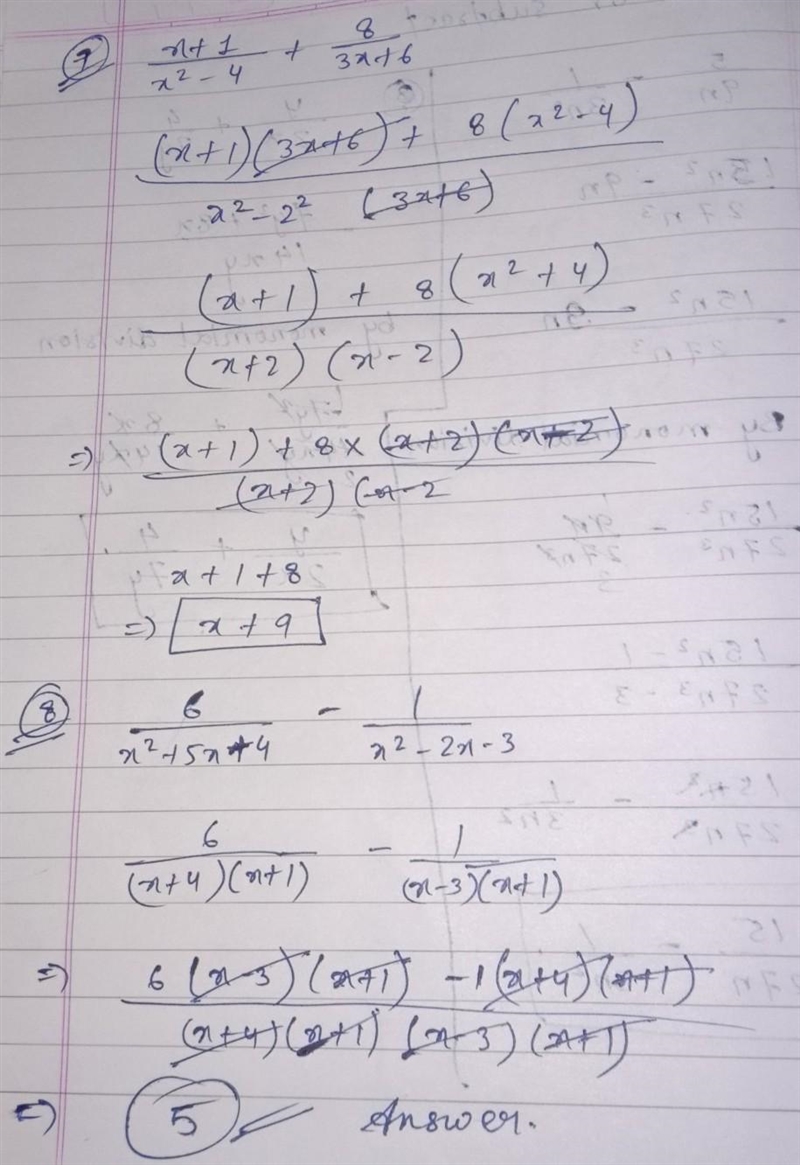 7 x+1/x²-4 + 8/3x+6
(x+1)(3x+6) + 8(x²-4)
x²-2² (3x+6)
(x+1) + 8(x²+4)
(x+2) (x-2)
=> (x+1) + 8 × (x+2) (x-2)
(x+2) (x-2
x+1+8
=> x+9
8 6/x²+5x+4 - 1/x²-2x-3
6/(x+4)(x+1) - 1/(x-3)(x+1)
=> 6 (x-3) (x+1) -1(x+4)(x+1)
(x+4)(x+1) (x-3) (x+1)
=> 5 Answer.